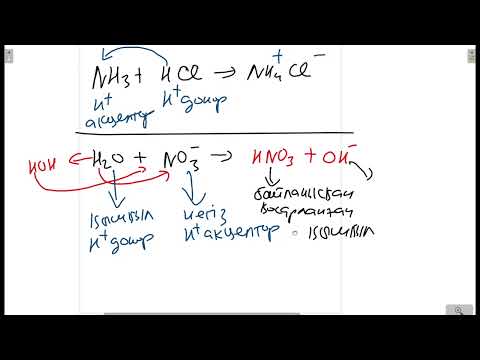 NH₃ + HCl → NH₄⁺Cl⁻
H⁺ акцептор H⁺ донор
HOH ← H₂O + NO₃⁻ → HNO₃ + OH⁻
қышқыл H⁺ донор
негіз H⁺ акцептор
байланысқан
қышқыл